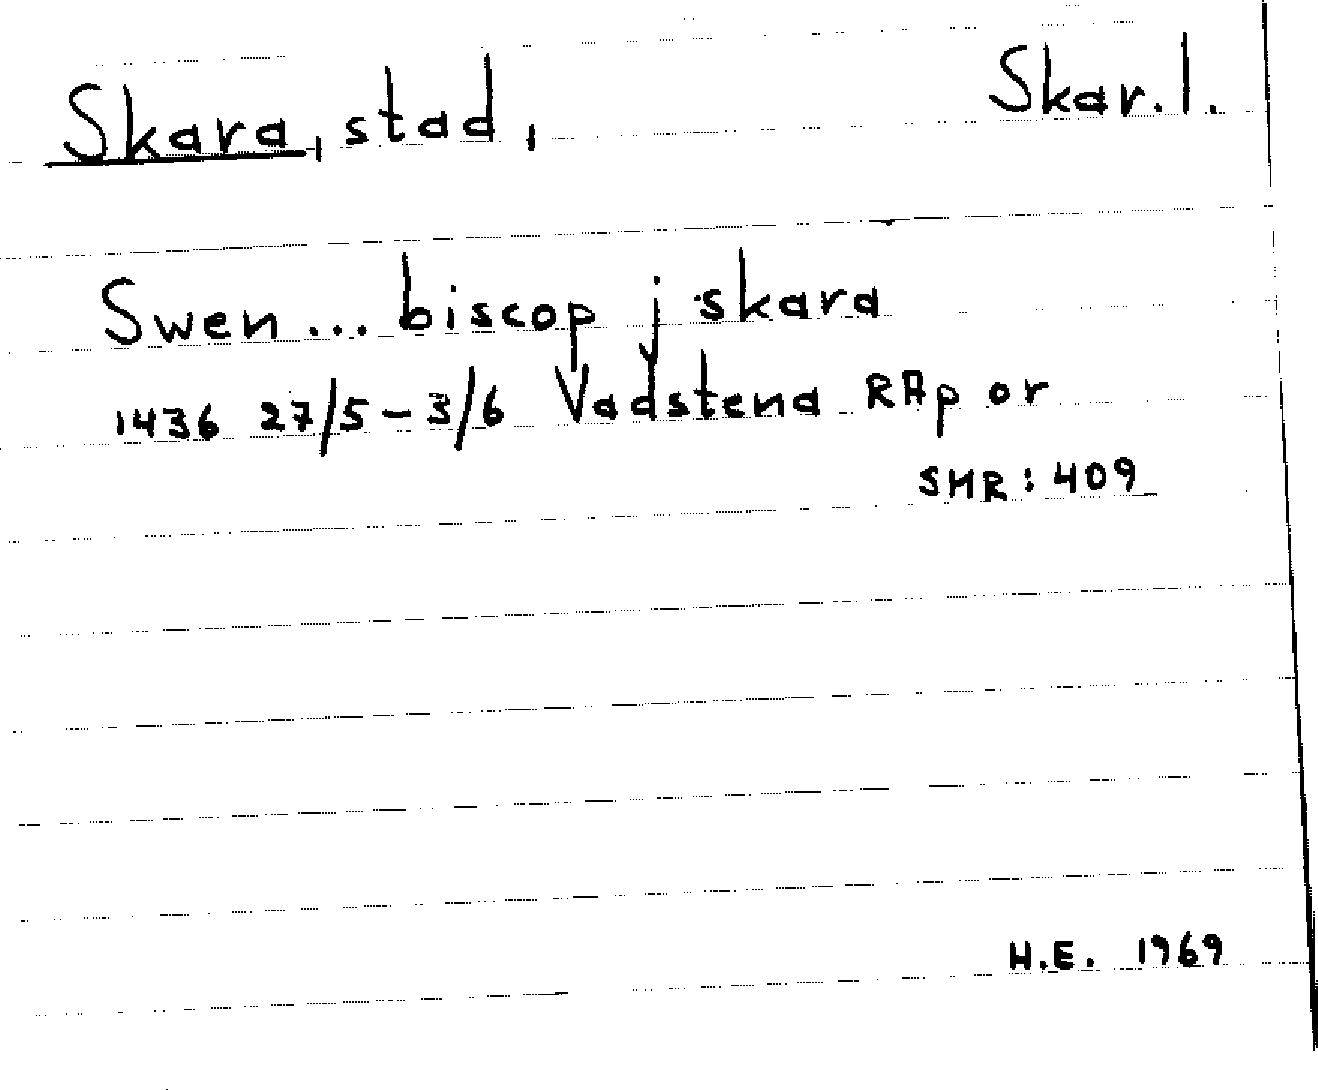 Skara, stad, Skar. l.
Swen... biscop j skara
1436 27/5 - 3/6 Vadstena RAp or
SMR: 409
H.E. 1969